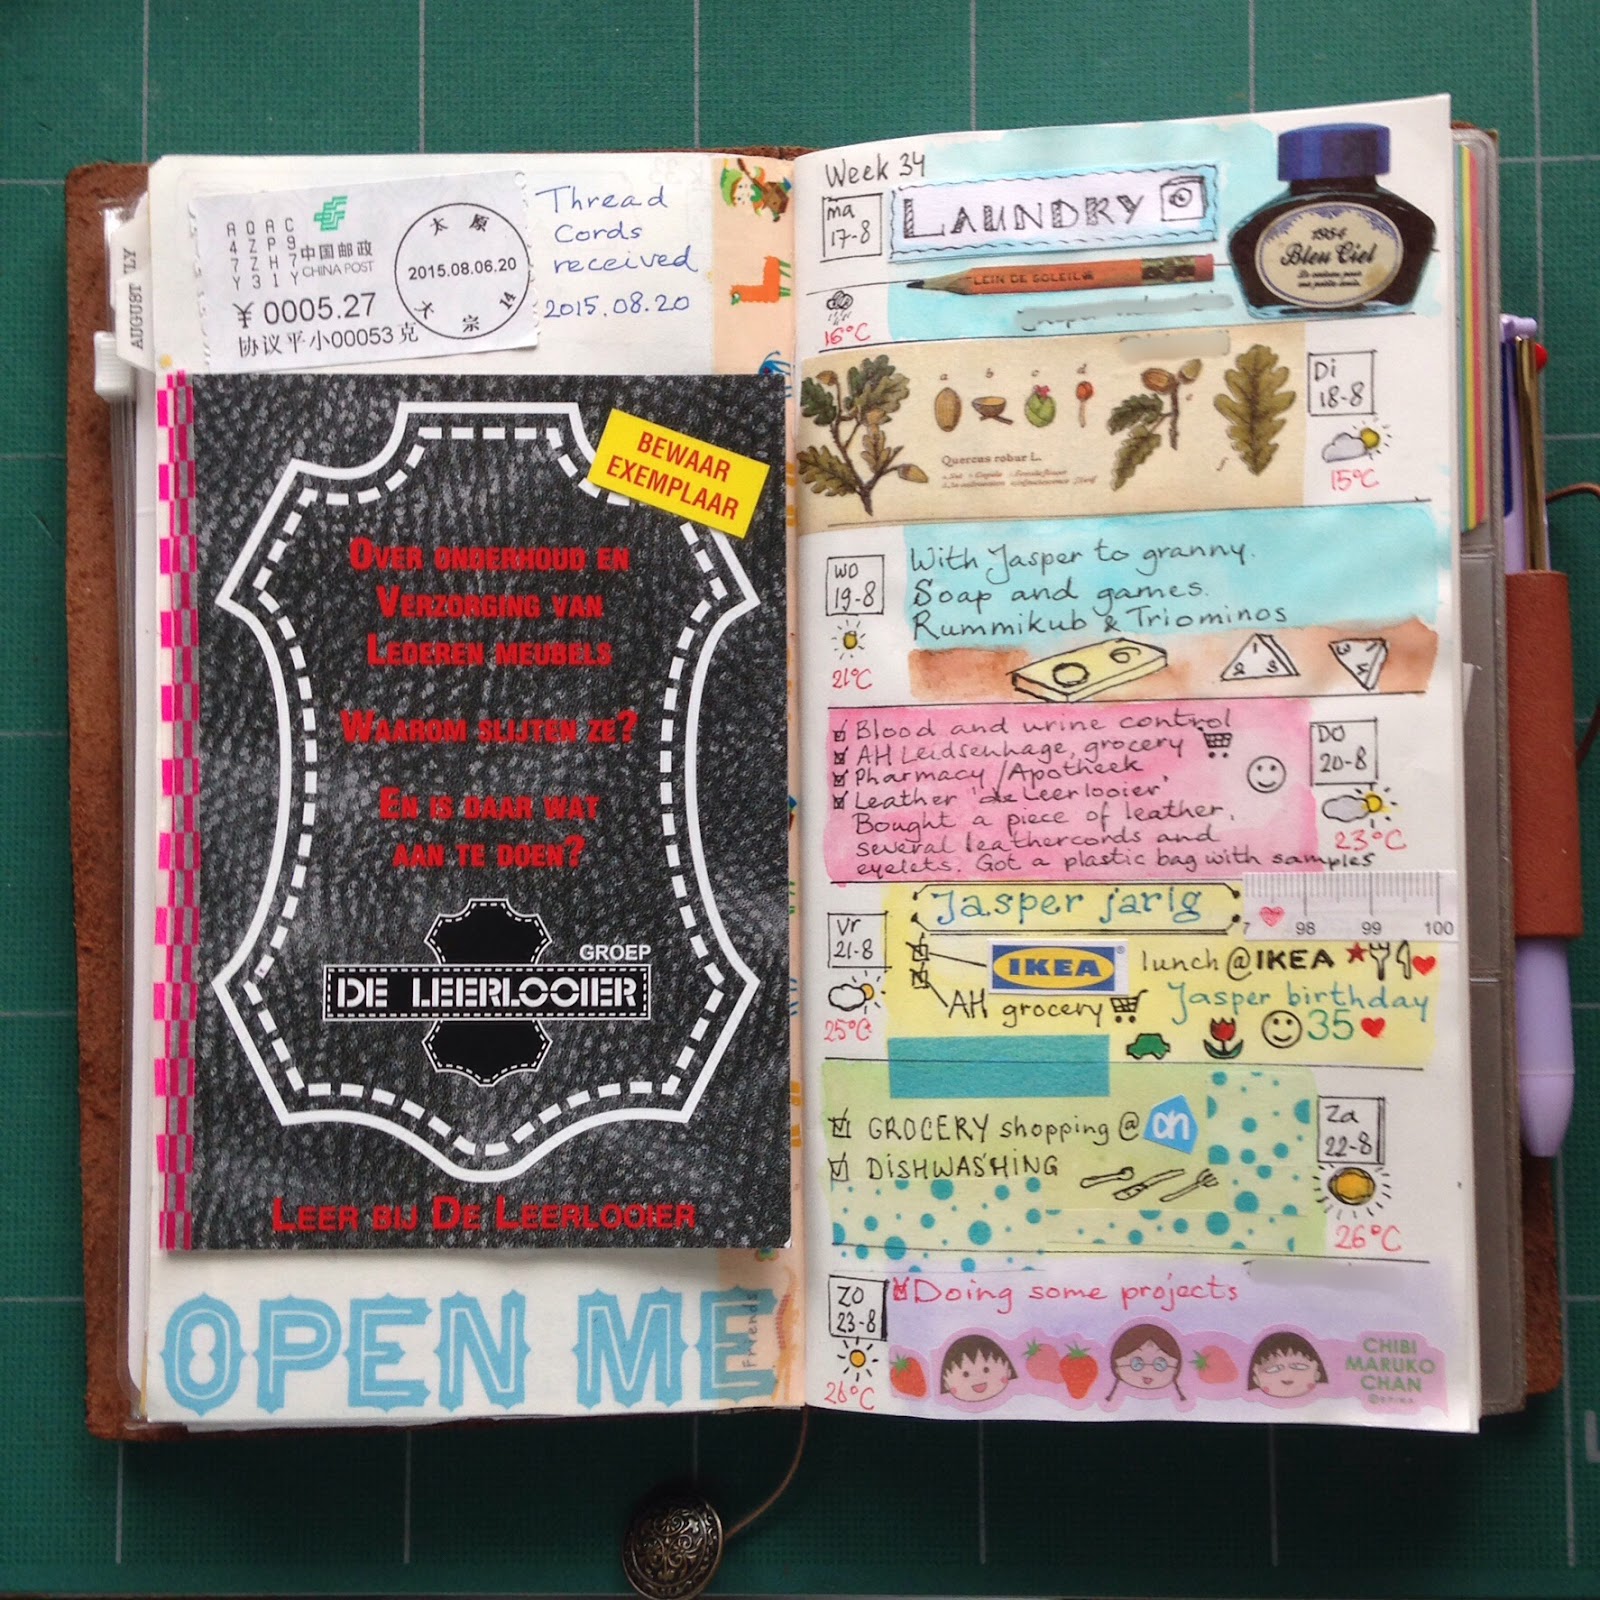 AUGUST
LY
AQAC
4ZP9
7ZH7
Y31Y
中国邮政
CHINA POST
¥0005.27
协议平小00053克
太原
2015.08.06.20
大宗
14
Thread
Cords
received
2015.08.20
BEWAAR
EXEMPLAAR
OVER ONDERHOUD EN
VERZORGING VAN
LEDEREN MEUBELS
WAAROM SLIJTEN ZE?
EN IS DAAR WAT
AAN TE DOEN?
GROEP
DE LEERLOOIER
LEER BIJ DE LEERLOOIER
OPEN ME
Friends
Week 34
ma
17-8
LAUNDRY
1954
Bleu Ciel
LEIN DE SOLEIL
16°C
a b c d
Quercus robur L.
f
Di
18-8
15°C
WO
19-8
21°C
With Jasper to granny.
Soap and games.
Rummikub & Triominos
Blood and urine control
AH Leidsenhage, grocery
Pharmacy/Apotheek
Leather 'de Leerlooier'
Bought a piece of leather,
several leathercords and
eyelets. Got a plastic bag with samples
DO
20-8
23°C
Vr
21-8
25°C
Jasper jarig
7 98 99 100
IKEA
lunch@IKEA
AH grocery
Jasper birthday
35
GROCERY shopping @ ah
DISHWASHING
Za
22-8
26°C
ZO
23-8
26°C
Doing some projects
CHIBI
MARUKO
CHAN